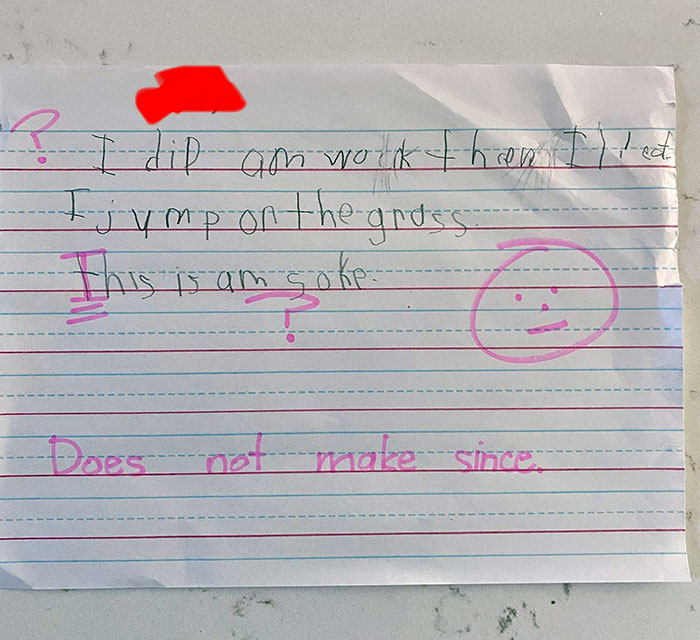 ? I did am work then I l
I jump on the grass.
This is am soke.
?
Does not make since.